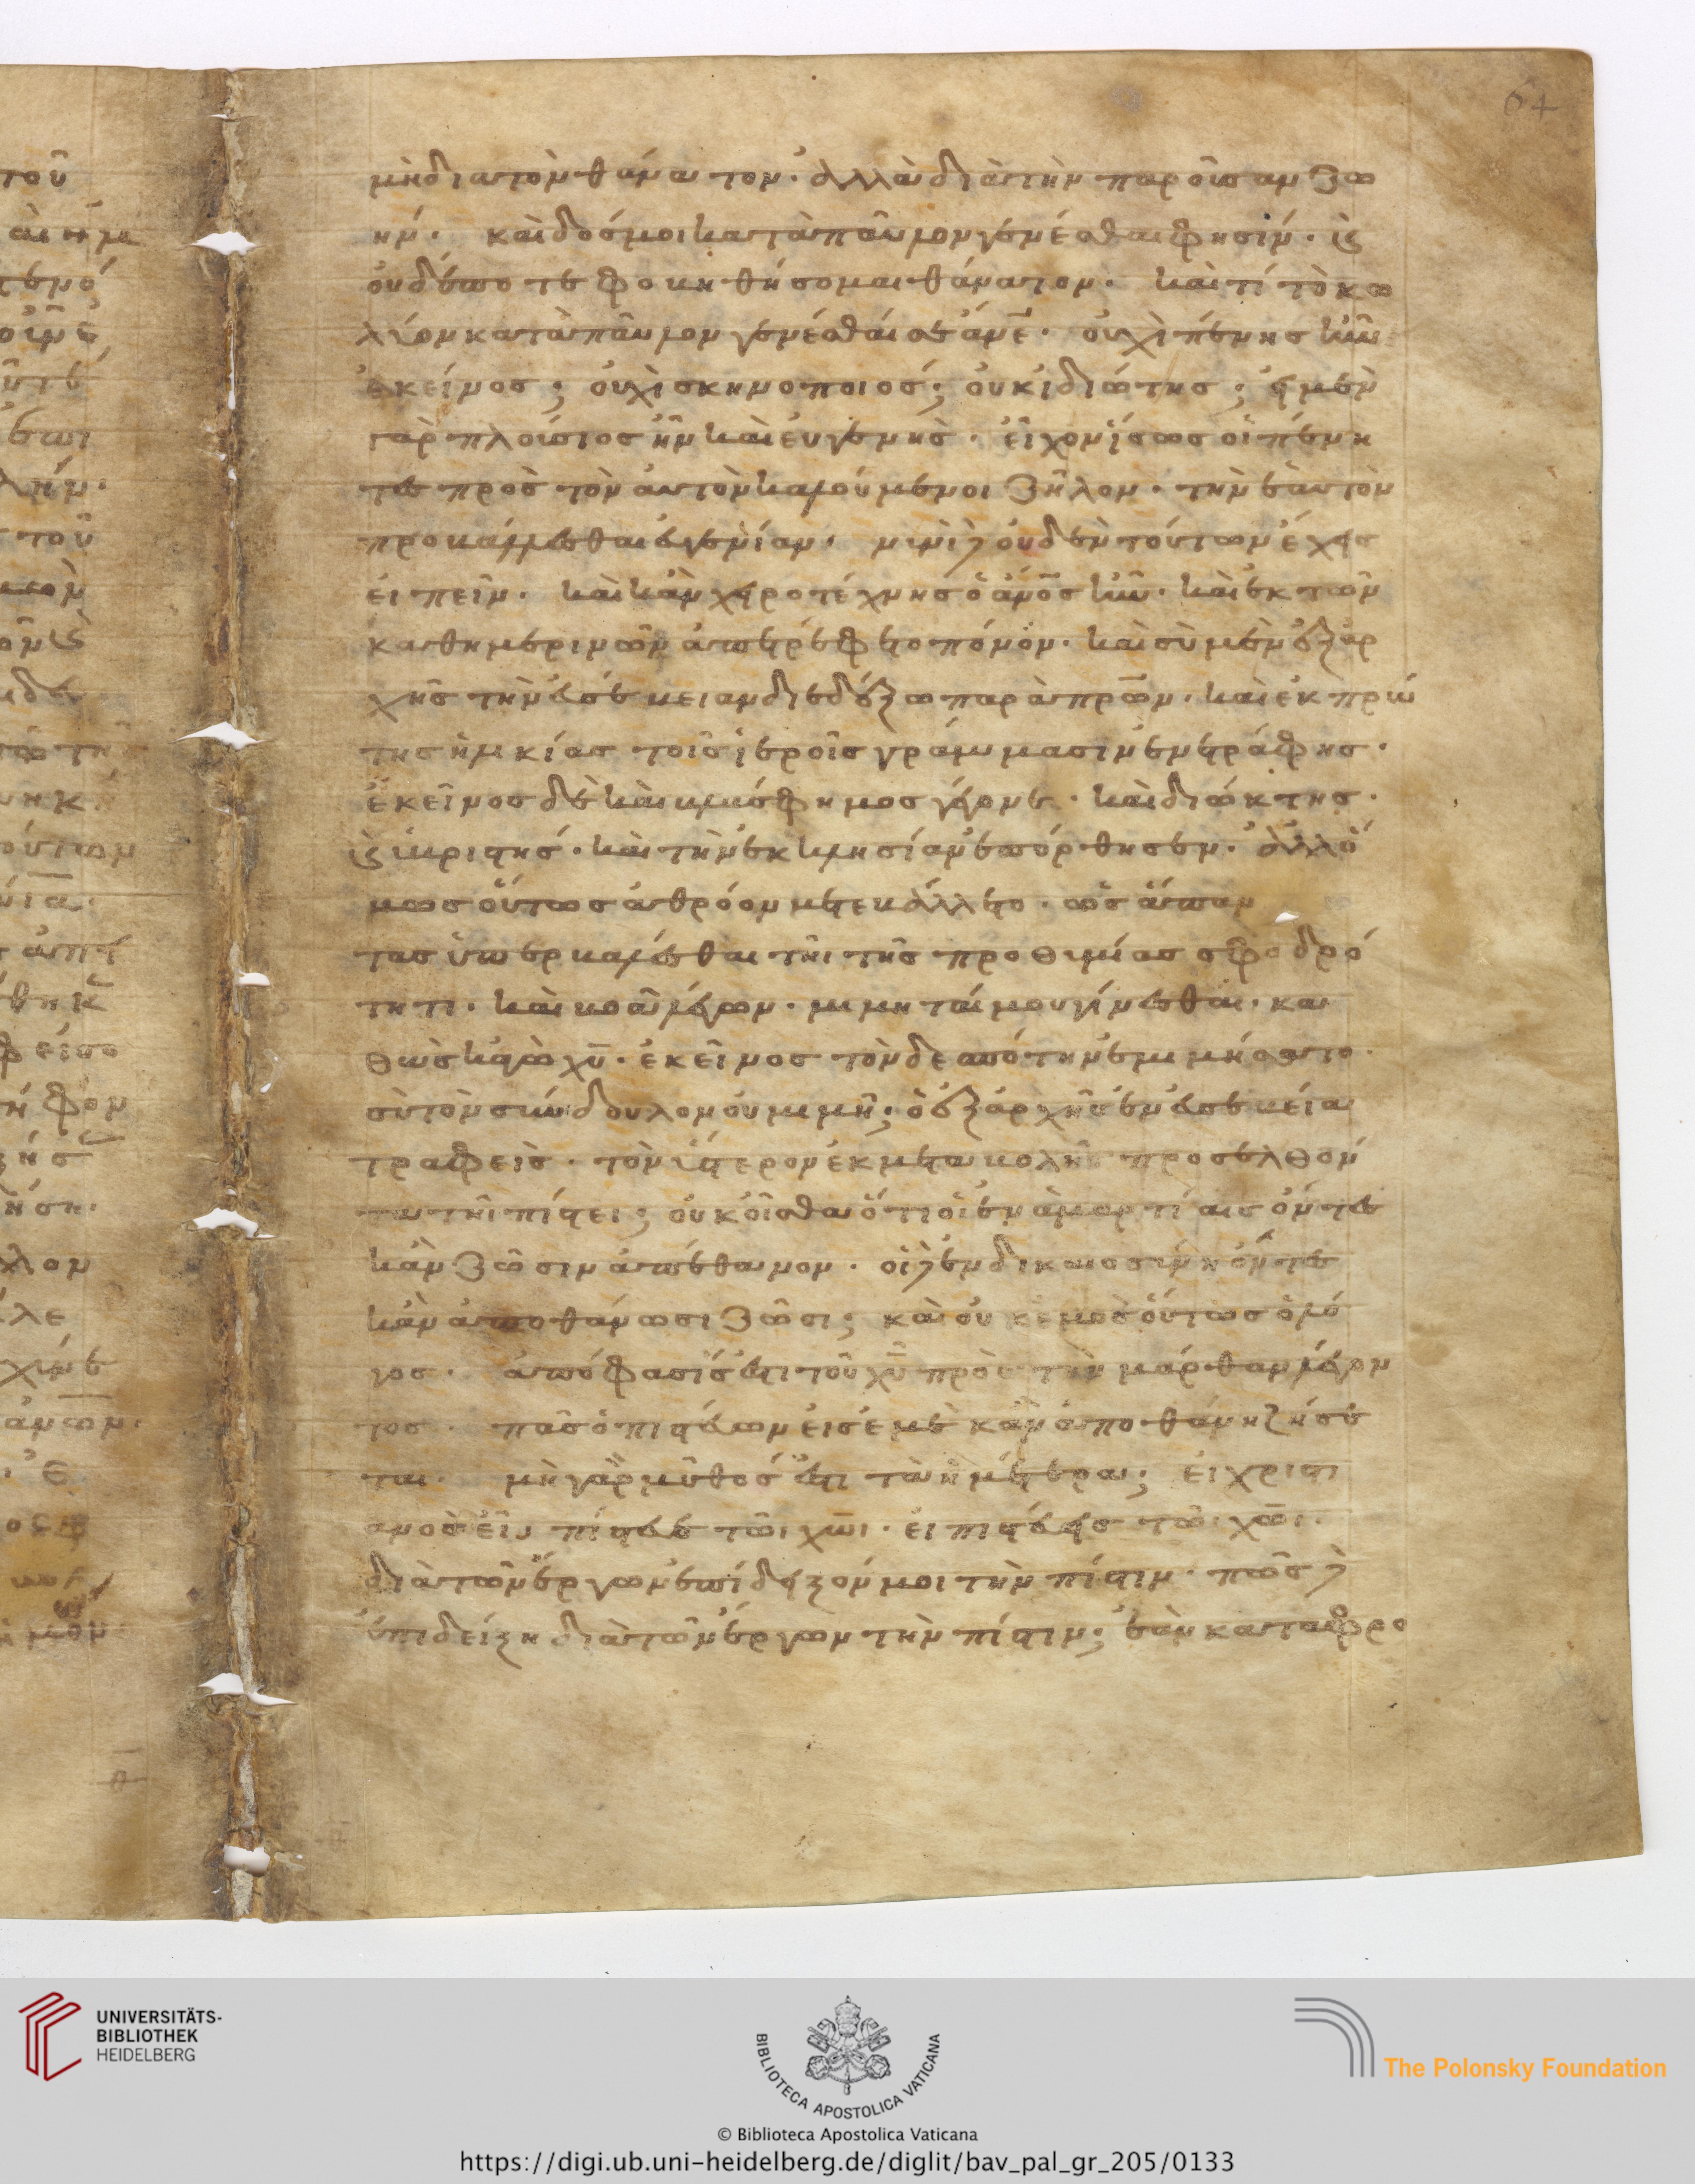 64
μὴ διὰ τὸν θάνατον· ἀλλὰ διὰ τὴν παροῦσαν ζω
ήν· καὶ δόσ μοι κατὰ παῦλον γενέσθαι φησίν· κ(αὶ)
οὐδέποτε φοβηθήσομαι θάνατον· καὶ τί τὸ κω
λύον κατὰ παῦλον γενέσθαι σε ἄνε· οὐχὶ πένης ἦν
ἐκεῖνος; οὐχὶ σκηνοποιός; οὐκ ἰδιώτης; εἰ μὲν
γὰρ πλούσιος ἦν καὶ εὐγενής· εἶχον ἴσως οἱ πένη
τες πρὸς τὸν αὐτὸν καλούμενοι ζῆλον· τὴν ἑαυτῶν
προβάλλεσθαι
εἰπεῖν· καὶ γὰρ χειροτέχνης ὁ ἀνος ἦν· καὶ ἐκ τῶν
καθημερινῶν ἀπετρέφετο πόνων· καὶ σὺ μὲν ἐξ ἀρ
χῆς τὴν εὐσέβειαν διεδέξω παρὰ πρων· καὶ ἐκ πρώ
της ἡλικίας τοῖς ἱεροῖς γράμμασιν ἐνετράφης·
ἐκεῖνος δὲ καὶ βλάσφημος γέγονε· καὶ διώκτης·
κ(αὶ) ὑβριστής· καὶ τὴν ἐκκλησίαν ἐπόρθησεν· ἀλλ' ὅ
μως οὕτως ἀθρόον μετεβάλλετο· ὡς ἅπαν
τας ὑπερβαλέσθαι τῆι τῆς προθυμίας σφοδρό
τητι· καὶ βοᾶι λέγων· μιμηταί μου γίνεσθαι· κα
θὼς κἀγὼ χυ· ἐκεῖνος τὸν δεσπότην ἐμιμήσατο·
σὺ τὸν σύνδουλον οὐ μιμῆ; ὁ ἐξ ἀρχῆς ἐν εὐσεβεία
τραφεὶς· τὸν ὕστερον ἐκ μεταβολῆς προσελθόν
τα τῆι πίστει; οὐκ οἶσθα ὅτι οἱ ἐν ἁμαρτίαις ὄντες
κἂν ζῶσιν ἀπέθανον· οἱ δὲ ἐν δικαιοσύνη ὄντες
κἂν ἀποθάνωσι ζῶσι; καὶ οὐκ ἐμὸς οὗτος ὁ λό
γος· ἀπόφασίς ἐστι τοῦ χυ πρὸς τὴν μάρθαν λέγον
τος· πᾶς ὁ πιστεύων εἰς ἐμὲ κἂν ἀποθάνη ζήσε
ται· μὴ γὰρ μῦθός ἐστι τὰ ἡμέτερα; εἰ χριστι
ανὸς εἶ, πίστευε τῶι χωι· εἰ πιστεύεις τῶι χωι·
διὰ τῶν ἔργων ἐπίδειξόν μοι τὴν πίστιν· πῶς δὲ
ἐπιδείξη διὰ τῶν ἔργων τὴν πίστιν; ἐὰν καταφρο
UNIVERSITÄTS-
BIBLIOTHEK
HEIDELBERG
BIBLIOTECA APOSTOLICA VATICANA
The Polonsky Foundation
© Biblioteca Apostolica Vaticana
https://digi.ub.uni-heidelberg.de/diglit/bav_pal_gr_205/0133